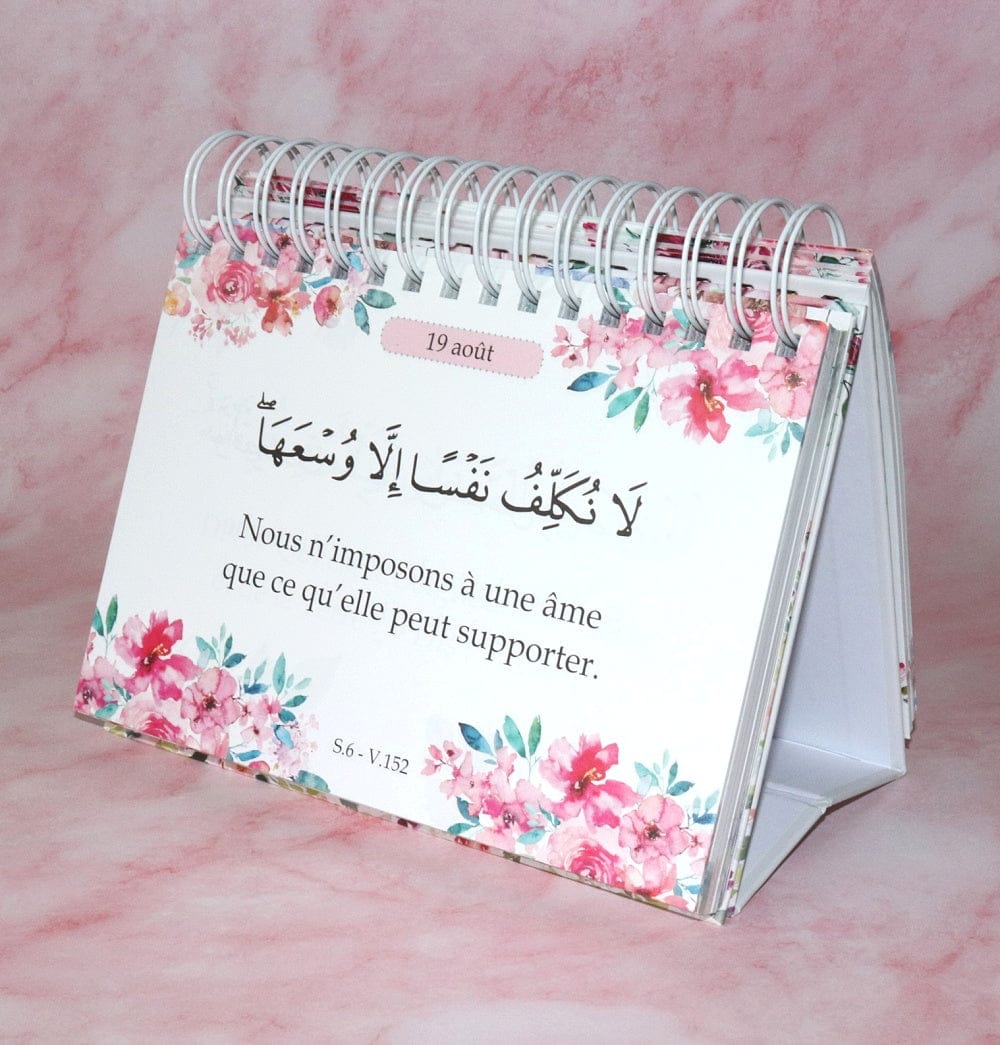 19 août
لَا نُكَلِّفُ نَفۡسًا إِلَّا وُسۡعَهَاۖ
Nous n’imposons à une âme
que ce qu’elle peut supporter.
S.6 - V.152